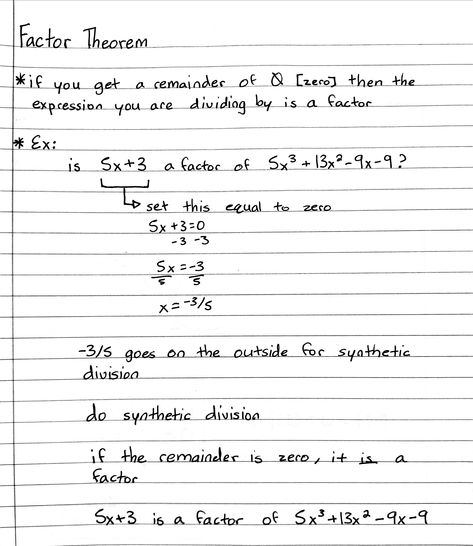 Factor Theorem
* if you get a remainder of 0 [zero] then the
expression you are dividing by is a factor
* Ex:
is 5x+3 a factor of 5x³+13x²-9x-9?
set this equal to zero
5x+3=0
-3 -3
5x=-3
5 5
x=-3/5
-3/5 goes on the outside for synthetic
division
do synthetic division
if the remainder is zero, it is a
factor
5x+3 is a factor of 5x³+13x²-9x-9